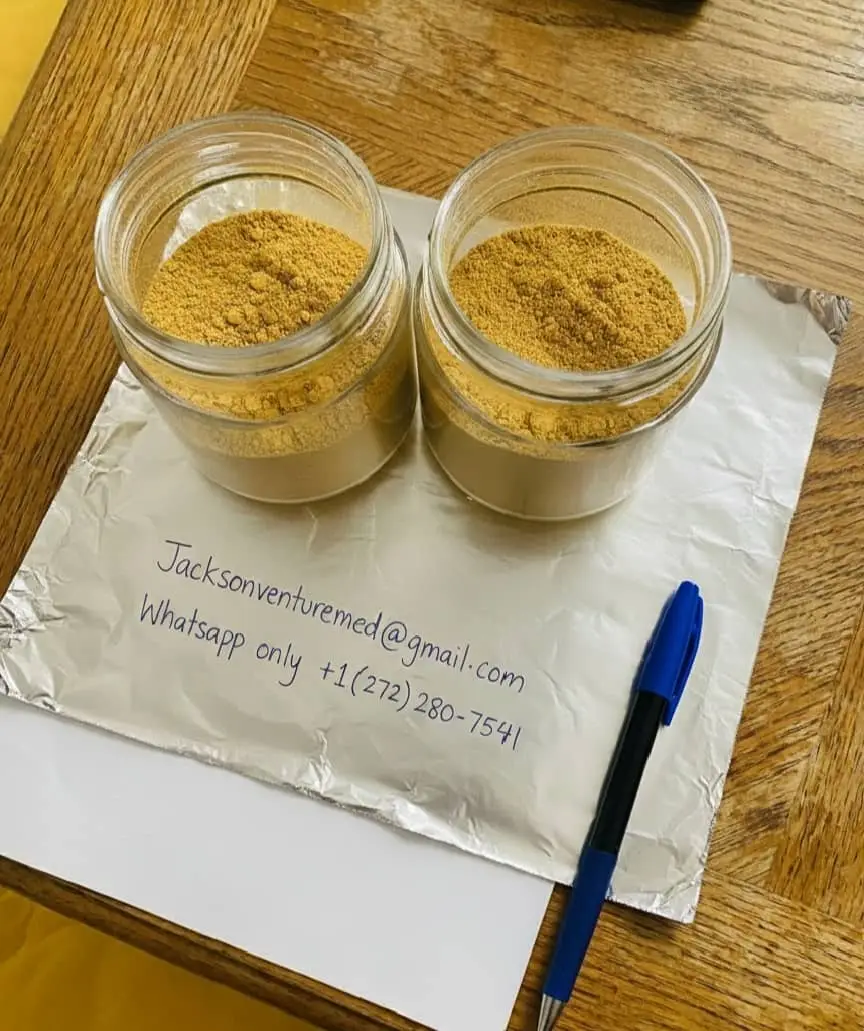 Jacksonventuremed@gmail.com
Whatsapp only +1(272)280-7541